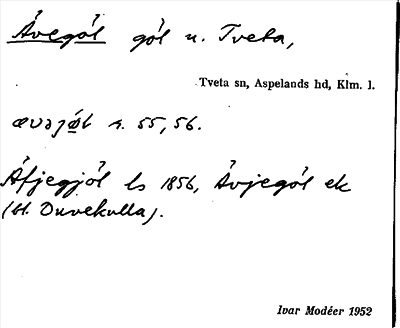 Åvegöl göl n. Tveta,
Tveta sn, Aspelands hd, Klm. l.
s. 55, 56.
Åfjegjöl ls 1856, Åvjegöl ek
(bl. Duvekulla).
Ivar Modéer 1952